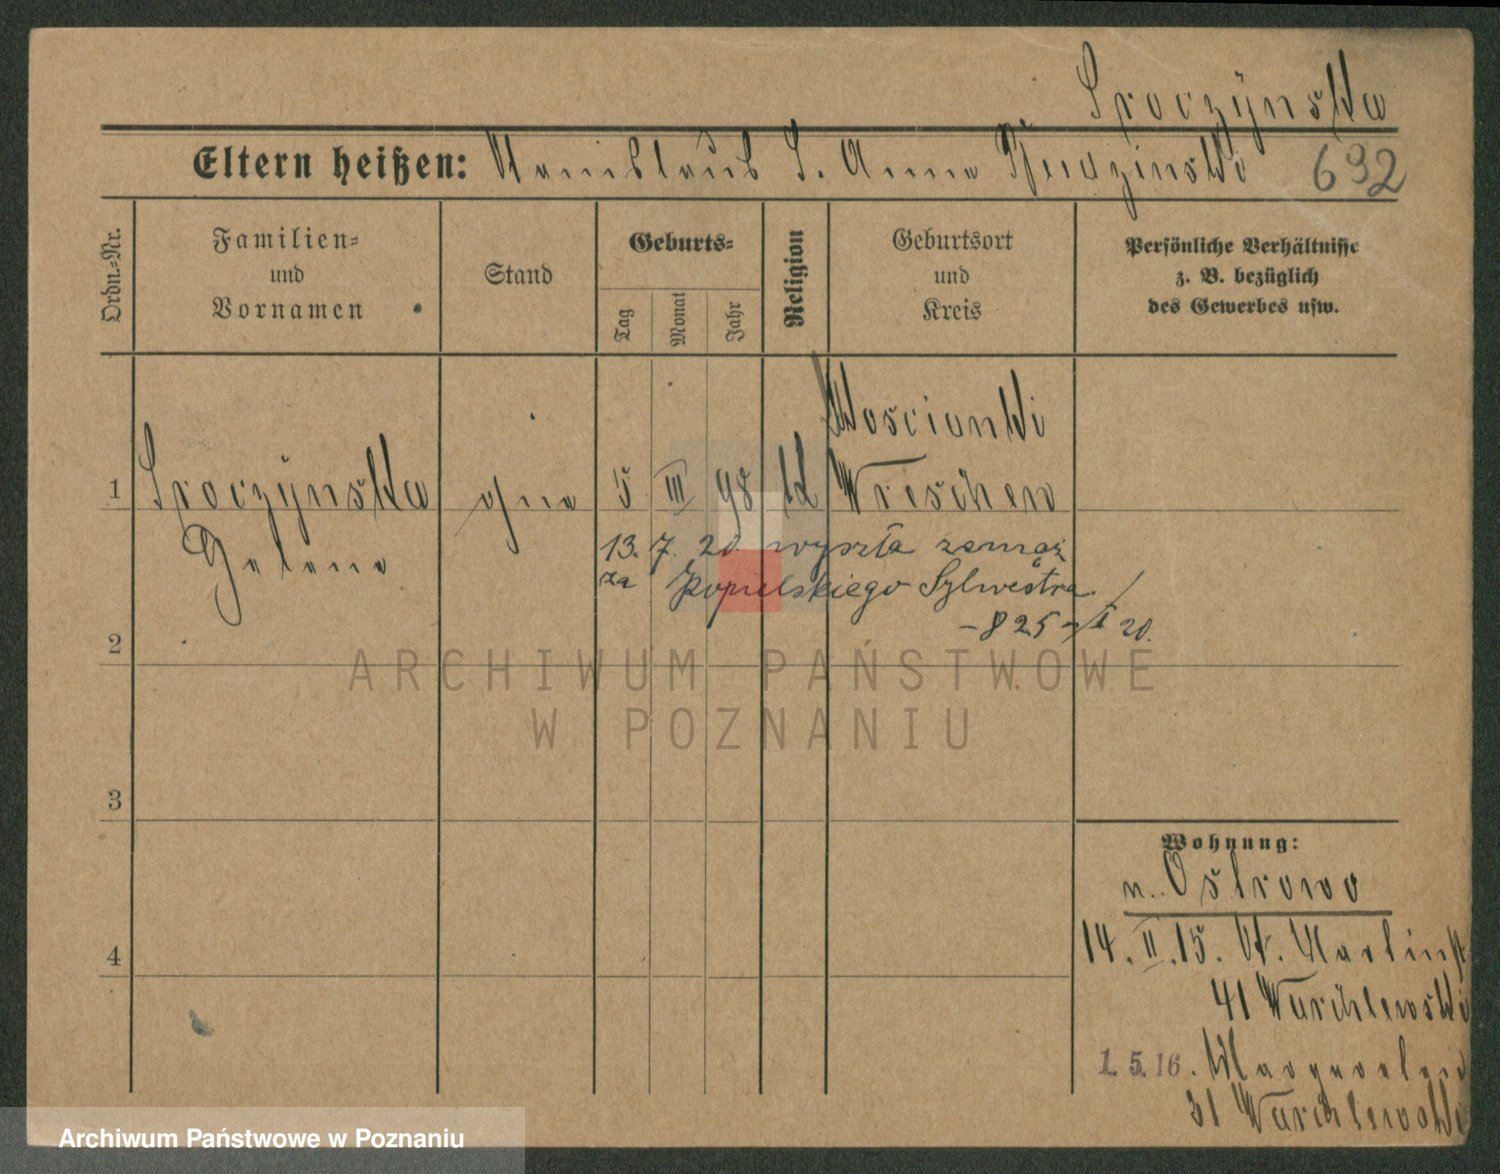 Sroczýnska
Eltern heißen: Stanislaus S. Anna
692
Ordn.-Nr.
Familien-
und
Vornamen
Stand
Geburts-
Tag
Monat
Jahr
Religion
Geburtsort
und
Kreis
Persönliche Verhältnisse
z. B. bezüglich
des Gewerbes usw.
1
Sroczýnska
Helena
ohne
5
III
98
kt
Koscianki
Wreschen
13. 7. 20. wyszła zamąż
za Popielskiego Sylwestra.
-825-/I 20.
2
3
4
Wohnung:
n. Ostrowo
14. II. 15. St. Martinst
41 Warchlewski
1. 5. 16. Margareten
31 Warchlewski
ARCHIWUM PAŃSTWOWE
W POZNANIU
Archiwum Państwowe w Poznaniu